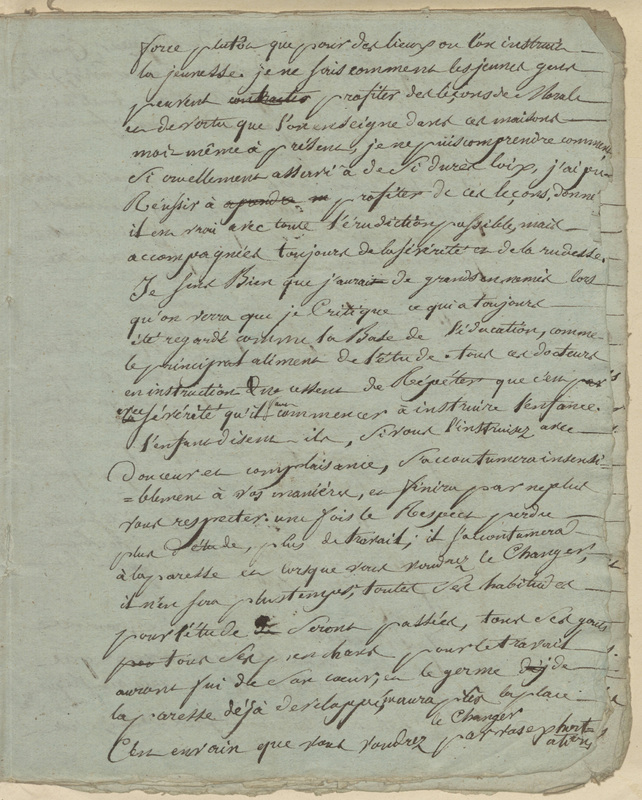 force plutôt que pour des lieux ou l'on instruit
la jeunesse. je ne sais comment les jeunes gens
peuvent contracter profiter des leçons de Morale
et de vertu que l'on enseigne dans ces maisons
moi-même à présent, je ne puis comprendre comment
Si cruellement asservi à de Si dures loix, j'ai pu
Réussir à aprendre profiter de ces leçons, donné
il est vrai avec toute l'érudition possible, mais
accompagnées toujours de la sévérité et de la rudesse.
Je sens Bien que j'aurait de grands ennemis lors
qu'on verra que je Critique ce qui a toujours
été regardé comme la Base de l'éducation, comme
le principal aliment de l'étude. tous ces docteurs
en instruction ne cessent de Répéter que c'est par
sévérité qu'il faut commencer à instruire l'enfance.
l'enfant disent-ils, Si vous l'instruisez avec
Douceur et complaisance, S'accoutumera insensi-
=blement à vos manières, et finira par ne plus
vous respecter. une fois le Respect perdu
plus d'étude, plus de travail; il S'acoutumera
à la paresse et lorsque vous voudrez le Changer,
il n'en sera plus temps, toutes Ses habitudes
pour l'étude Seront passées, tous Ses gouts
tous Ses penchans pour le travail
auront fui de Son cœur, et le germe de
la paresse déjà développé, aura pris la place
C'est en vain que vous voudrez le Changer par vos exhortations